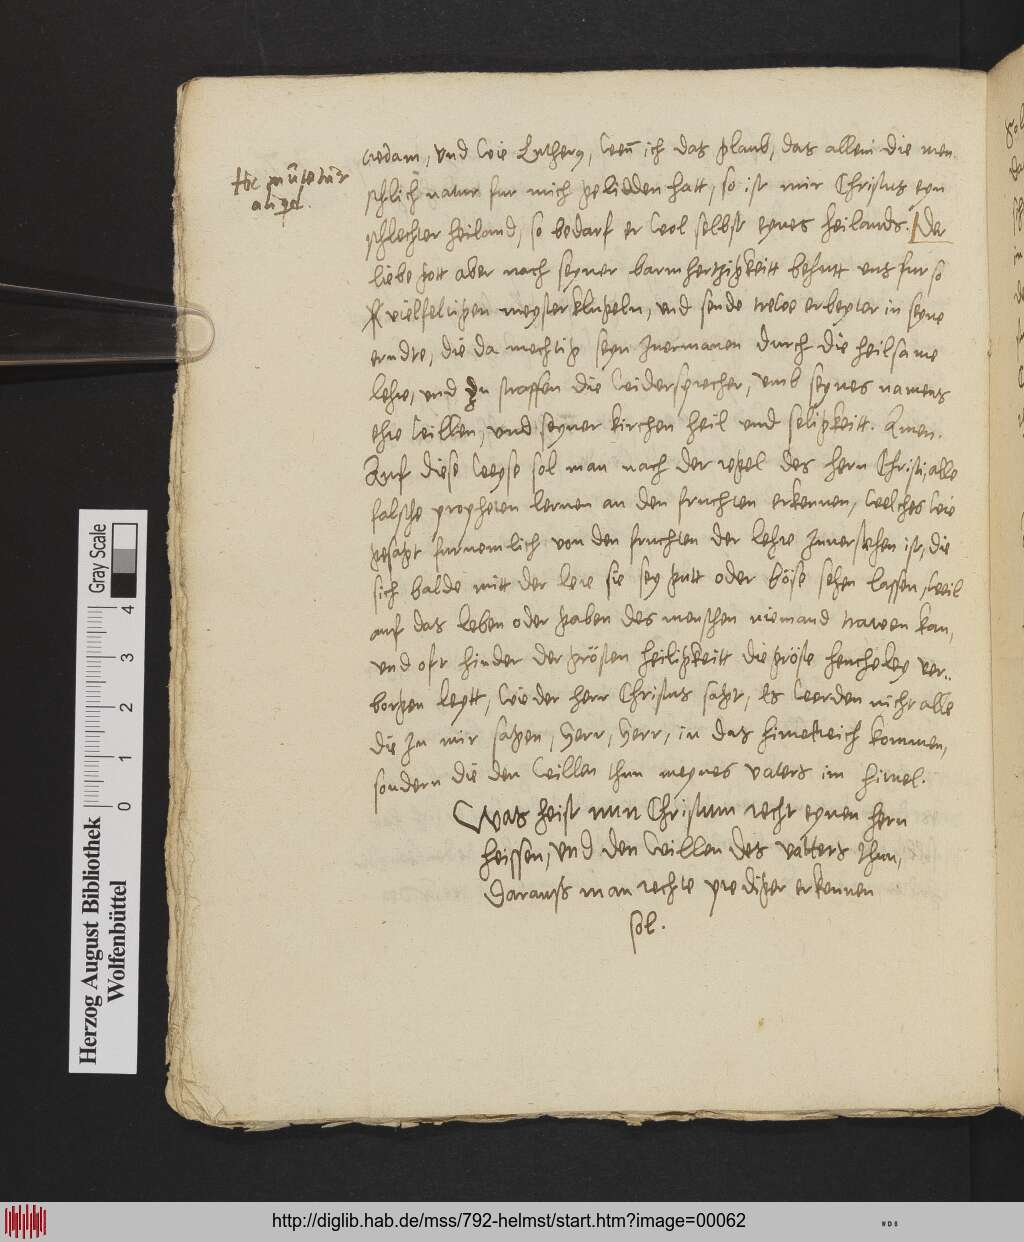 redam, und wie Lutherus, Wen̄ ich das glaub, das allein die men
schlich natur fur mich gelidden hatt, so ist mir Christus eyn
schlechter heiland, so bedarf er wol selbst eynes heilands. Der
liebe gott aber nach seyner barmhertzigkeitt behutt uns fur so
vielfeltigen meysterklugeln, und sende trewe erbeyter in seyne
erndte, die da mechtig seyn zuermanen durch die heilsame
lehre, und zu straffen die widersprecher, umb seynes namens
ehre willen, und seyner kirchen heil und seligkeitt. Amen.
Auf diese weyse sol man nach der regel des hern Christi, alle
falsche propheten lernen an den fruchten erkennen, welches wie
gesagt furnemlich von den fruchten der lehre zuverstehen ist, die
sich balde mitt der lere sie sey gutt oder böse sehen lassen, weil
auf das leben oder gaben des menschen niemand trawen kan,
und oft hinder der grösten heiligkeitt die gröste heucheley ver-
borgen leytt, wie der herr Christus sagt, Es werden nicht alle
die zu mir sagen, Herr, Herr, in das himelreich kommen,
sondern die den willen thun meynes vaters im himel.
Was heist nun Christum recht eynen hern
heissen, und den willen des vatters thun,
darauss man rechte prediger erkennen
sol.
Herzog August Bibliothek
Wolfenbüttel
0 1 2 3 4
Gray Scale
http://diglib.hab.de/mss/792-helmst/start.htm?image=00062